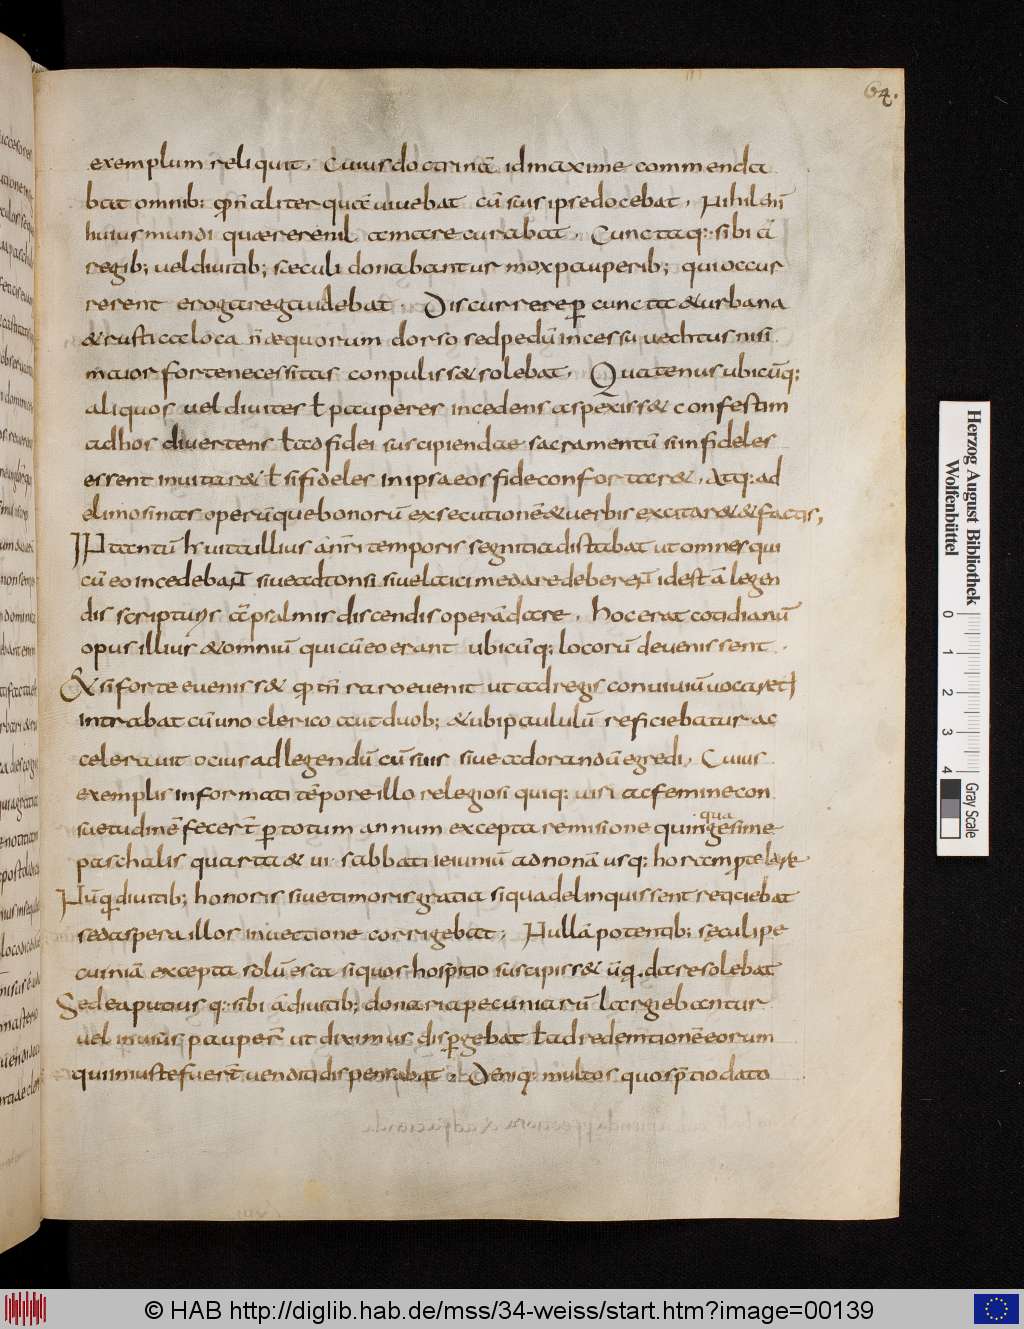 64.
exemplum reliquit. Cuius doctrinā id maxime commenda
bat omnib: qđ ñ aliter quā uiuebat cū suis ipse docebat. Nihil enī
huius mundi quærere nil amare curabat. Cunctaq: sibi ā
regib; uel diuitib; sęculi donabantur mox pauperib; qui occur
rerent erogare gaudebat. Discurrere ꝑ cuncta & urbana
& rustica loca ñ æquorum dorso sed pedū incessu uectus nisi
maior forte necessitas conpulisset solebat. Quatenus ubicūq:
aliquos uel diuites ł pauperes incedens aspexiss& confestim
ad hos diuertens ł ad fidei suscipiendae sacramentū si infideles
essent inuitar& ł si fideles in ipsa eos fide confortar&. Atq: ad
elimosinas operūque bonorū exsecutionē & uerbis excitar& & factis,
IN tantū h uita illius a ñri temporis segnitia distabat ut omnes qui
cū eo incedebant siue adtonsi siue laici medare deberent id est ā legen
dis scripturis āt psalmis discendis operā dare. hoc erat cotidianū
opus illius & omniū qui cū eo erant ubicūq: locorū deuenissent.
Et si forte eueniss& qđ tñ raro euenit ut ad regis conuiuiū uocaret
intrabat cū uno clerico aut duob; & ubi paululū reficiebatur ac
celerauit ocius ad legendū cū suis siue ad orandū egredi. Cuius
exemplis informati tēpore illo religosi quiq: uiri ac femine con
suetudinē fecerт̄ ꝑ totum annum excepta remisione quinquagesime
paschalis quarta & ui sabbati ieiuniū ad nonā usq: horam ꝓtelare
Nūq diuitib; honoris siue timoris gratia si qua delinquissent reticebat
sed aspera illos inuectione corrigebat; Nullā potentib: sęculi pe
cuniā excepta solū esca si quos hospitio suscipiss& ūq. dare solebat
Sed ea potius q: sibi ā diuitib; donaria pecuniarū largiebantur
uel in usus pauperū ut diximus disꝑgebat ł ad redemtionē eorum
qui iniuste fuerт̄ uenditi dispensabat. Deniq: multos quos p̄tio dato
Herzog August Bibliothek
Wolfenbüttel
0 1 2 3 4
Gray Scale
© HAB http://diglib.hab.de/mss/34-weiss/start.htm?image=00139